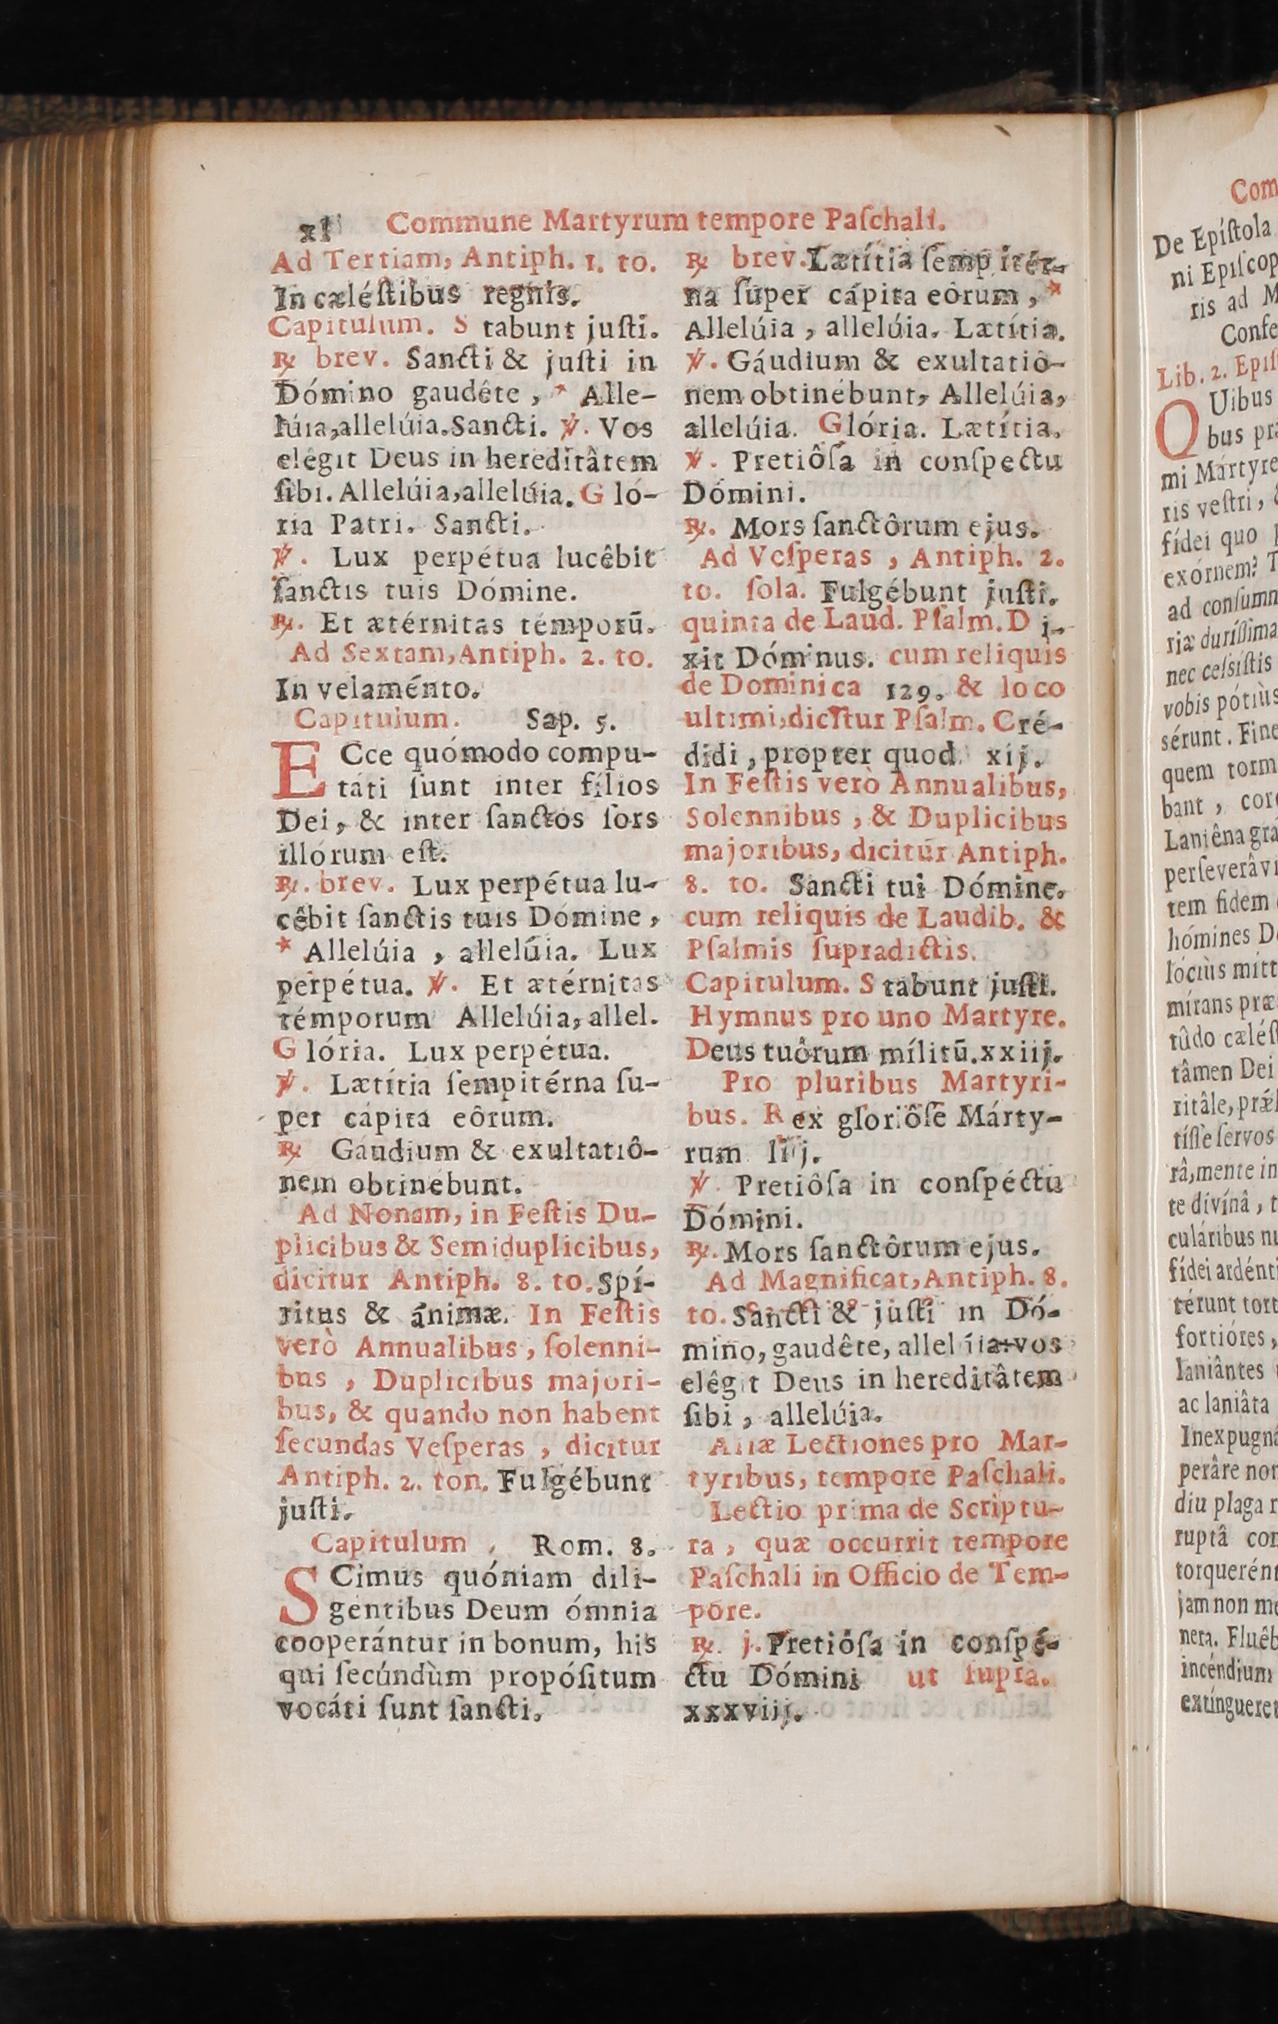 xl Commune Martyrum tempore Paſchali.
Ad Tertiam, Antiph. 1. to.
In cæléſtibus regnis.
Capitulum. S tabunt juſti.
℟ brev. Sancti & juſti in
Dómino gaudête, * Alle-
lúia, allelúia. Sancti. ℣. Vos
elégit Deus in hereditâtem
ſibi. Allelúia, allelúia. G ló-
ria Patri. Sancti.
℣. Lux perpétua lucêbit
ſanctis tuis Dómine.
℟. Et ætérnitas témporū.
Ad Sextam, Antiph. 2. to.
In velaménto.
Capitulum. Sap. 5.
ECce quómodo compu-
táti ſunt inter fílios
Dei, & inter ſanctos ſors
illórum eſt.
℟. brev. Lux perpétua lu-
cêbit ſanctis tuis Dómine,
* Allelúia, allelúia. Lux
perpétua. ℣. Et ætérnitas
témporum Allelúia, allel.
G lória. Lux perpétua.
℣. Lætítia ſempitérna ſu-
per cápita eôrum.
℟ Gáudium & exultatiô-
nem obtinébunt.
Ad Nonam, in Feſtis Du-
plicibus & Semiduplicibus,
dicitur Antiph. 8. to. Spí-
ritus & ánimæ. In Feſtis
verò Annualibus, ſolenni-
bus, Duplicibus majori-
bus, & quando non habent
ſecundas Veſperas, dicitur
Antiph. 2. ton. Fulgébunt
juſti.
Capitulum. Rom. 8.
SCimus quóniam dili-
géntibus Deum ómnia
cooperántur in bonum, his
qui ſecúndùm propóſitum
vocáti ſunt ſancti.
℟ brev. Lætítia ſempitér-
na ſuper cápita eôrum, *
Allelúia, allelúia. Lætítia.
℣. Gáudium & exultatiô-
nem obtinébunt, Allelúia,
allelúia. Glória. Lætítia.
℣. Pretiôſa in conſpectu
Dómini.
℟. Mors ſanctôrum ejus.
Ad Veſperas, Antiph. 2.
to. ſola. Fulgébunt juſti.
quinta de Laud. Pſalm. D i-
xit Dóminus. cum reliquis
de Dominica 129. & loco
ultimi, dicitur Pſalm. Cré-
didi, propter quod xij.
In Feſtis verò Annualibus,
Solennibus, & Duplicibus
majoribus, dicitur Antiph.
8. to. Sancti tui Dómine.
cum reliquis de Laudib. &
Pſalmis ſupradictis.
Capitulum. S tabunt juſti.
Hymnus pro uno Martyre.
Deus tuôrum mílitū. xxiij.
Pro pluribus Martyri-
bus. R ex gloriôſe Márty-
rum liij.
℣ Pretiôſa in conſpéctu
Dómini.
℟. Mors ſanctôrum ejus.
Ad Magnificat, Antiph. 8.
to. Sancti & juſti in Dó-
mino, gaudête, allelúia: vos
elêgit Deus in hereditâtem
ſibi, allelúia.
Aliæ Lectiones pro Mar-
tyribus, tempore Paſchali.
Lectio prima de Scriptu-
ra, quæ occurrit tempore
Paſchali in Officio de Tem-
pore.
℟. j. Pretiôſa in conſpé-
ctu Dómini ut ſupra.
xxxviij.
Com
De Epíſtola
ni Epiſcop
ris ad M
Confe
Lib. 2. Epiſ
QUibus
bus præ
mi Mártyre
ris veſtri,
fídei quo
exórnem? T
ad conſumn
riæ duríſſima
nec ceſsíſtis
vobis pótiùs
sérunt. Fine
quem torm
bant, coro
Laniêna gra
perſeverâvi
tem fidem
hómines D
lóciùs mitt
mírans præ
tûdo cæléſ
tâmen Dei
ritâle, præl
tíſſè ſervos
râ, mente in
te divínâ, t
culáribus nu
fídei ardénti
térunt tort
fortióres,
laniântes
ac laniâta
Inexpugná
perâre non
diu plaga r
ruptâ con
torqueréní
jam non me
nera. Fluêb
incéndium
extíngueret